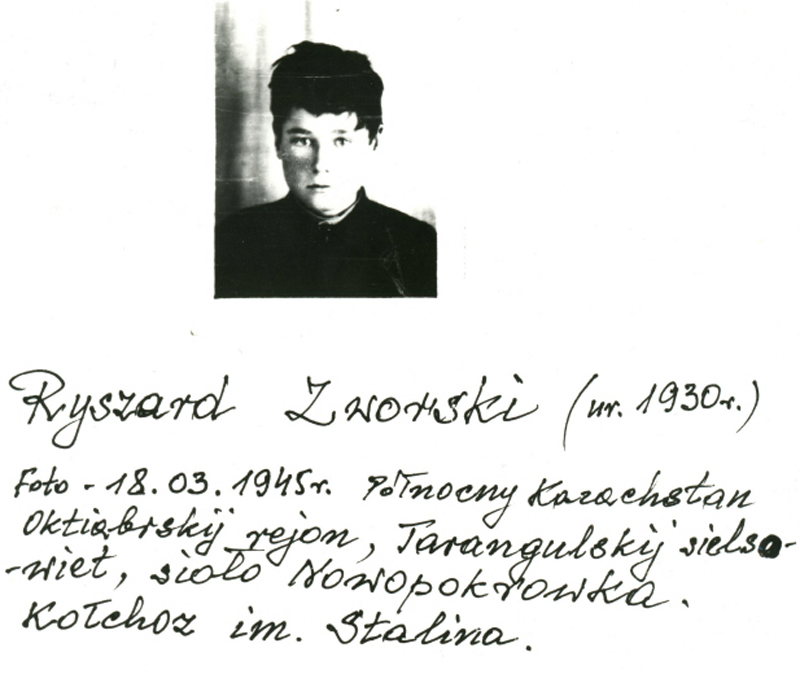 Ryszard Zworski (ur. 1930r.)
Foto - 18.03.1945r. Północny Kazachstan
Oktiabrskij rejon, Tarangulskij sielso-
-wiet, sioło Nowopokrowka.
Kołchoz im. Stalina.